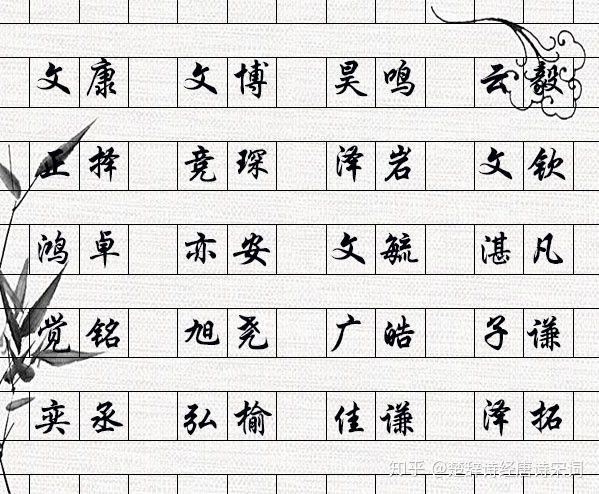 文康 文博 昊鸣 云毅
正择 竞琛 泽岩 文钦
鸿卓 亦安 文毓 湛凡
觉铭 旭尧 广皓 子谦
奕丞 弘榆 佳谦 泽拓
知乎 @楚辞诗经唐诗宋词